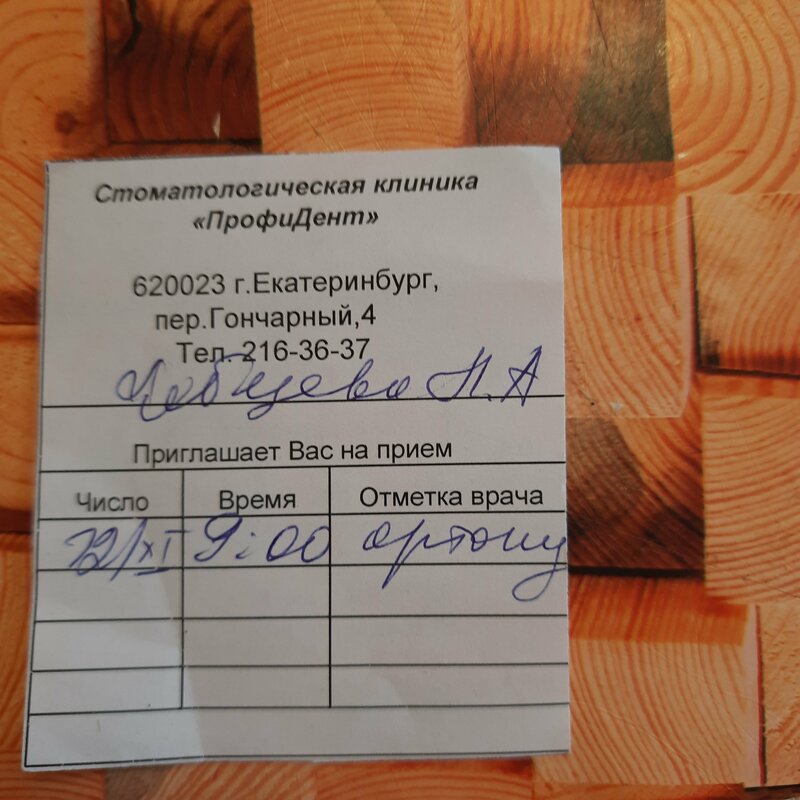 Стоматологическая клиника
«ПрофиДент»
620023 г.Екатеринбург,
пер.Гончарный,4
Тел. 216-36-37
Н. А
Приглашает Вас на прием
Число Время Отметка врача
12/XI 9:00